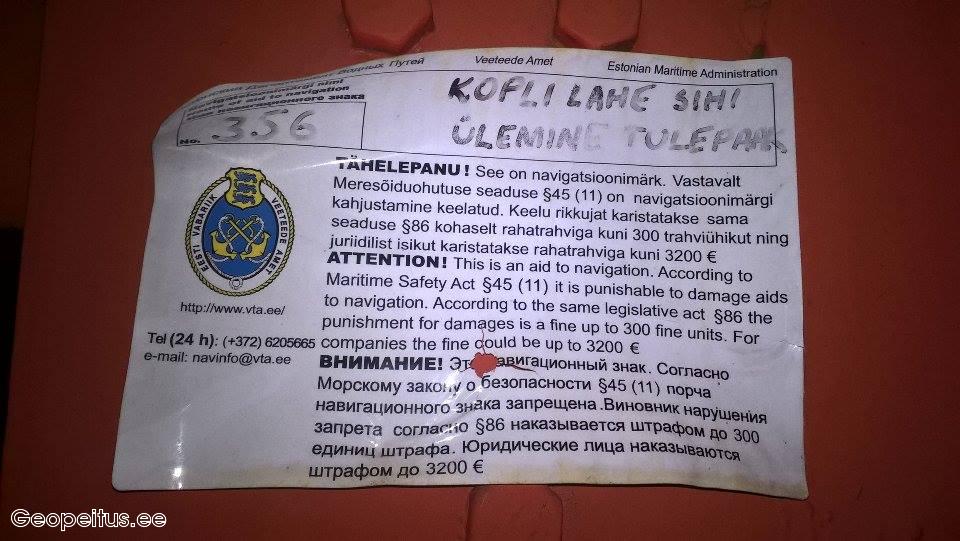 Водных Путей Veeteede Amet Estonian Maritime Administration
Navigatsioonimärgi nimi
Name of aid to navigation
навигационного знака
No. 356
KOPLI LAHE SIHI
ÜLEMINE TULEPAAK
EESTI VABARIIK VEETEEDE AMET
http://www.vta.ee/
Tel (24 h): (+372) 6205665
e-mail: navinfo@vta.ee
TÄHELEPANU! See on navigatsioonimärk. Vastavalt
Meresõiduohutuse seaduse §45 (11) on navigatsioonimärgi
kahjustamine keelatud. Keelu rikkujat karistatakse sama
seaduse §86 kohaselt rahatrahviga kuni 300 trahviühikut ning
juriidilist isikut karistatakse rahatrahviga kuni 3200 €
ATTENTION! This is an aid to navigation. According to
Maritime Safety Act §45 (11) it is punishable to damage aids
to navigation. According to the same legislative act §86 the
punishment for damages is a fine up to 300 fine units. For
companies the fine could be up to 3200 €
ВНИМАНИЕ! Это навигационный знак. Согласно
Морскому закону о безопасности §45 (11) порча
навигационного знака запрещена.Виновник нарушения
запрета согласно §86 наказывается штрафом до 300
единиц штрафа. Юридические лица наказываются
штрафом до 3200 €
Geopeitus.ee